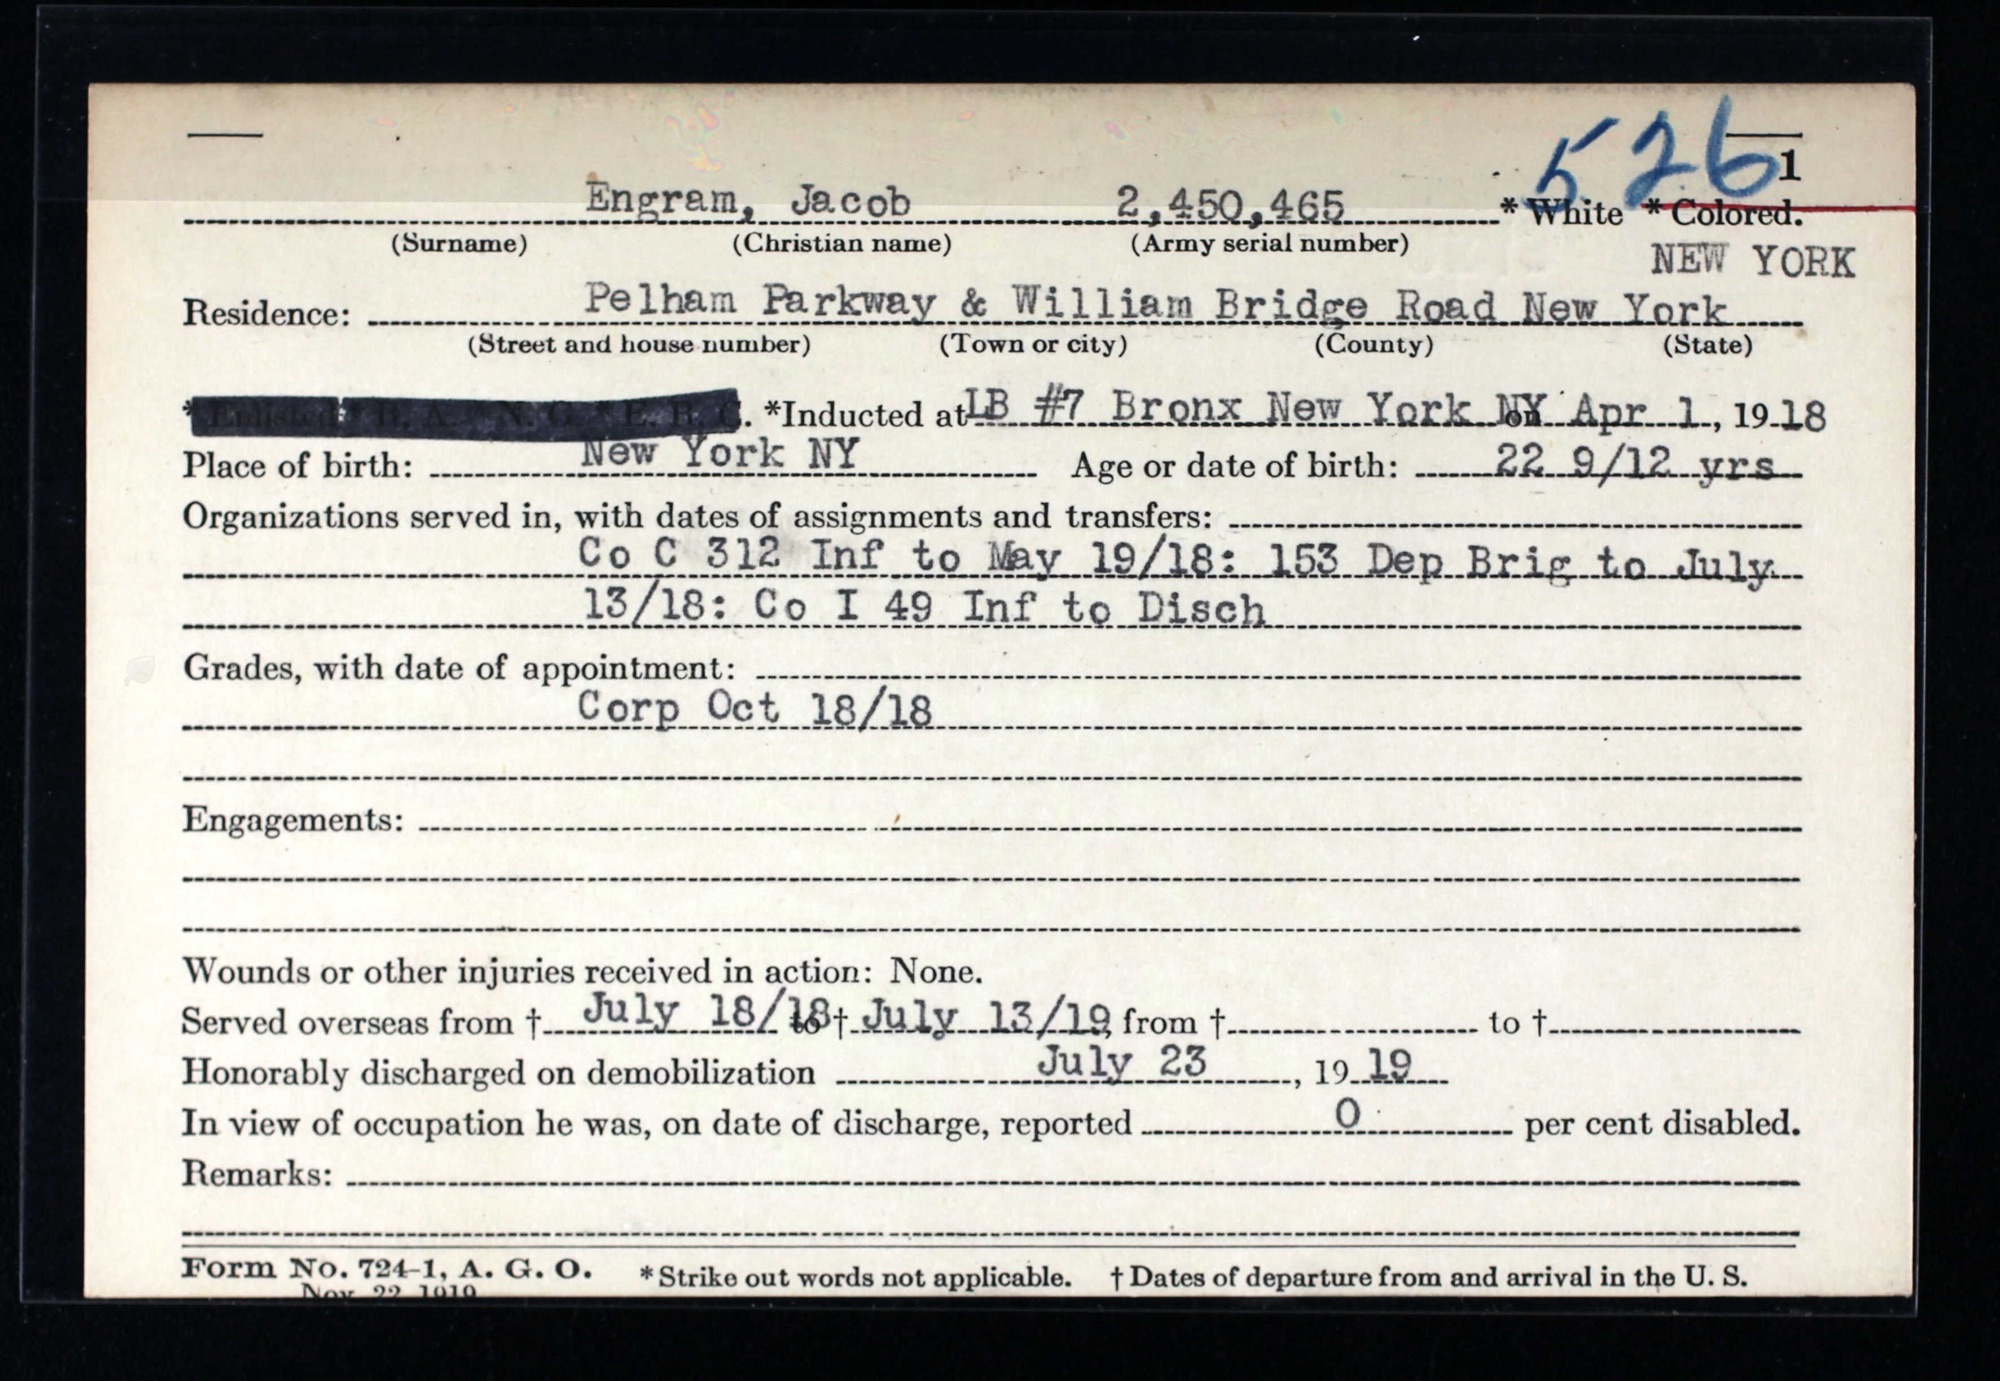 526
1
Engram, Jacob 2,450,465 * White * Colored.
(Surname) (Christian name) (Army serial number)
NEW YORK
Residence: Pelham Parkway & William Bridge Road New York
(Street and house number) (Town or city) (County) (State)
*Enlisted R. A. N. G. E. R. C. *Inducted at LB #7 Bronx New York NY on Apr 1, 1918
Place of birth: New York NY Age or date of birth: 22 9/12 yrs
Organizations served in, with dates of assignments and transfers:
Co C 312 Inf to May 19/18: 153 Dep Brig to July
13/18: Co I 49 Inf to Disch
Grades, with date of appointment:
Corp Oct 18/18
Engagements:
Wounds or other injuries received in action: None.
Served overseas from † July 18/18 to † July 13/19, from † to †
Honorably discharged on demobilization July 23, 1919
In view of occupation he was, on date of discharge, reported 0 per cent disabled.
Remarks:
Form No. 724-1, A. G. O. * Strike out words not applicable. † Dates of departure from and arrival in the U. S.
Nov. 22, 1919